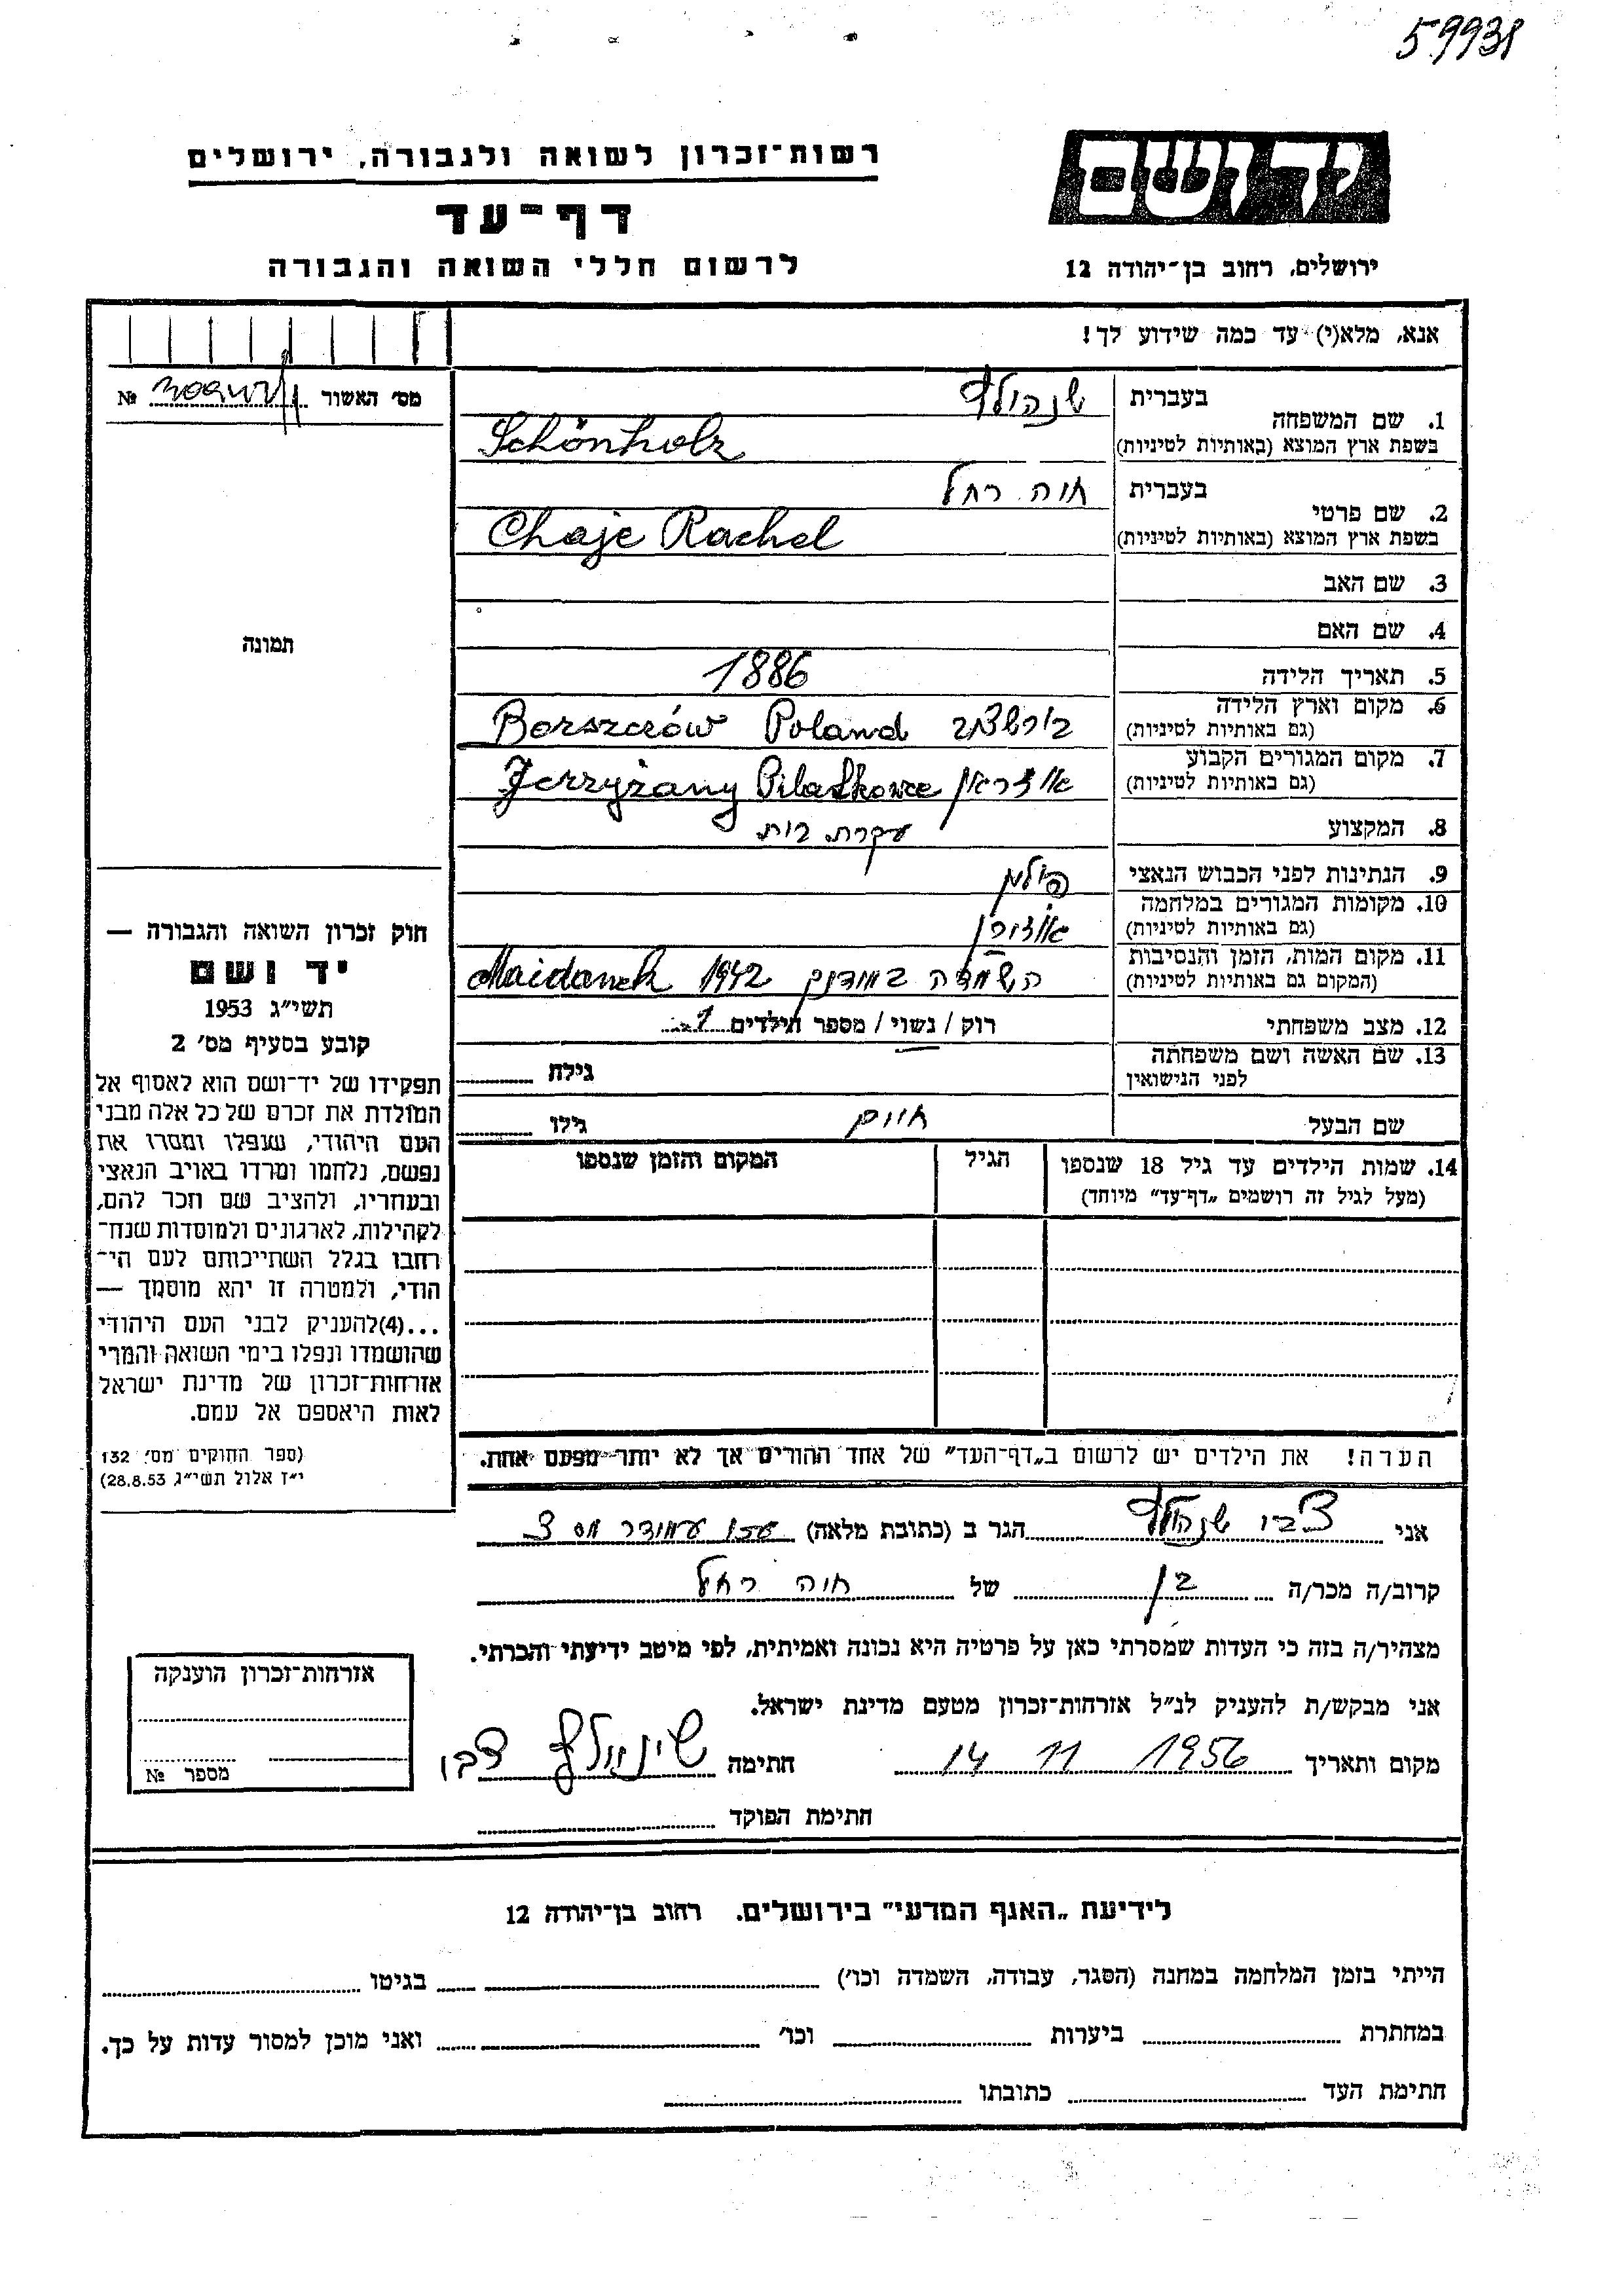 59938
יד ושם
ירושלים, רחוב בן־יהודה 12
רשות־זכרון לשואה ולגבורה, ירושלים
דף־עד
לרשום חללי השואה והגבורה
אנא, מלא(י) עד כמה שידוע לך!
מס' האשור № 
1. שם המשפחה
בעברית שנהולץ
בשפת ארץ המוצא (באותיות לטיניות) Schönholz
2. שם פרטי
בעברית חוה רחל
בשפת ארץ המוצא (באותיות לטיניות) Chaje Rachel
3. שם האב
4. שם האם
5. תאריך הלידה 1886
6. מקום וארץ הלידה
(גם באותיות לטיניות) Borszczów Poland בורשצ'וב
7. מקום המגורים הקבוע
(גם באותיות לטיניות) Pilatkowce
8. המקצוע עקרת בית
9. הנתינות לפני הכבוש הנאצי פולין
10. מקומות המגורים במלחמה
(גם באותיות לטיניות)
11. מקום המות, הזמן והנסיבות
(המקום גם באותיות לטיניות) השמדה Maidanek 1942
12. מצב משפחתי רוק / נשוי / מספר הילדים 1
13. שם האשה ושם משפחתה
לפני הנישואין גילה
שם הבעל חיים גילו
14. שמות הילדים עד גיל 18 שנספו הגיל המקום והזמן שנספו
(מעל לגיל זה רושמים „דף־עד" מיוחד)
הערה! את הילדים יש לרשום ב„דף־העד" של אחד ההורים אך לא יותר מפעם אחת.
תמונה
חוק זכרון השואה והגבורה —
יד ושם
תשי"ג 1953
קובע בסעיף מס' 2
תפקידו של יד־ושם הוא לאסוף אל
המולדת את זכרם של כל אלה מבני
העם היהודי, שנפלו ומסרו את
נפשם, נלחמו ומרדו באויב הנאצי
ובעוזריו, ולהציב שם וזכר להם,
לקהילות, לארגונים ולמוסדות שנח־
רבו בגלל השתייכותם לעם הי־
הודי, ולמטרה זו יהא מוסמך —
...(4)להעניק לבני העם היהודי
שהושמדו ונפלו בימי השואה והמרי
אזרחות־זכרון של מדינת ישראל
לאות היאספם אל עמם.
(ספר החוקים מס' 132
י"ז אלול תשי"ג 28.8.53)
אני צבי שנהולץ הגר ב (כתובת מלאה)
קרוב/ה מכר/ה בן של חוה רחל
מצהיר/ה בזה כי העדות שמסרתי כאן על פרטיה היא נכונה ואמיתית, לפי מיטב ידיעתי והכרתי.
אני מבקש/ת להעניק לנ"ל אזרחות־זכרון מטעם מדינת ישראל.
מקום ותאריך 14 11 1956 חתימה צבי
חתימת הפוקד
אזרחות־זכרון הוענקה
מספר №
לידיעת „האגף המדעי" בירושלים. רחוב בן־יהודה 12
הייתי בזמן המלחמה במחנה (הסגר, עבודה, השמדה וכו') בגיטו
במחתרת ביערות וכו' ואני מוכן למסור עדות על כך.
חתימת העד כתובתו